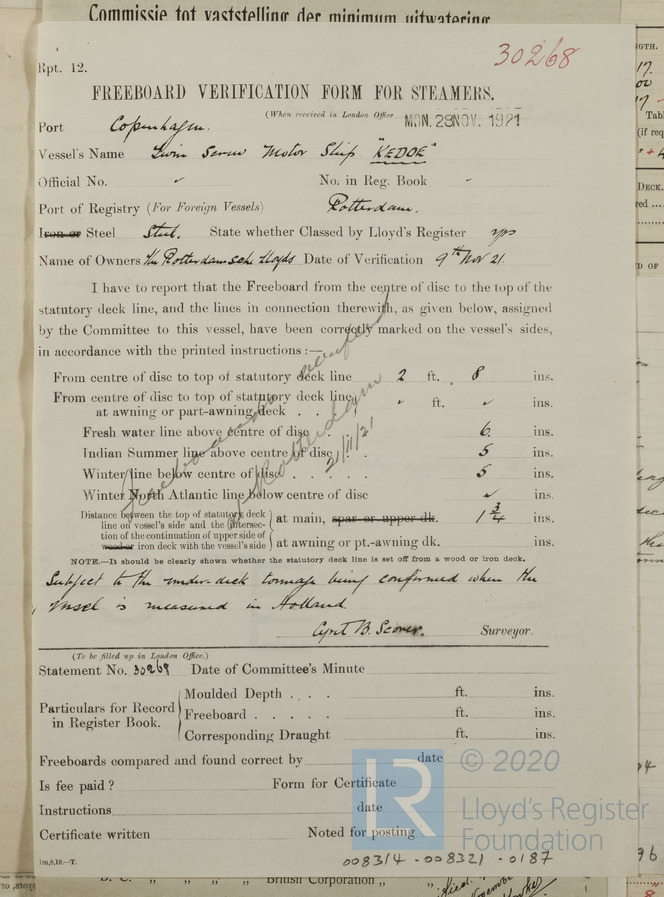 Commissie tot vaststelling der minimum uitwatering
30268
Rpt. 12.
FREEBOARD VERIFICATION FORM FOR STEAMERS.
(When received in London Office MON. 28 NOV. 1921
Port Copenhagen.
Vessel's Name Twin Screw Motor Ship "KEDOE"
Official No. ✓ No. in Reg. Book -
Port of Registry (For Foreign Vessels) Rotterdam.
Iron or Steel Steel. State whether Classed by Lloyd's Register yes
Name of Owners The Rotterdamsche Lloyds Date of Verification 9th Nov 21.
I have to report that the Freeboard from the centre of disc to the top of the
statutory deck line, and the lines in connection therewith, as given below, assigned
by the Committee to this vessel, have been correctly marked on the vessel's sides,
in accordance with the printed instructions :—
From centre of disc to top of statutory deck line 2 ft. 8 ins.
From centre of disc to top of statutory deck line,
at awning or part-awning deck . . " ft. ✓ ins.
Fresh water line above centre of disc . . 6 ins.
Indian Summer line above centre of disc . 5 ins.
Winter line below centre of disc . . . . 5 ins.
Winter North Atlantic line below centre of disc ✓ ins.
Distance between the top of statutory deck
line on vessel's side and the intersec-
tion of the continuation of upper side of
wood or iron deck with the vessel's side
at main, spar or upper dk. 1 3/4 ins.
at awning or pt.-awning dk. ins.
Rotterdam
21/11/21
NOTE.—It should be clearly shown whether the statutory deck line is set off from a wood or iron deck.
Subject to the under-deck tonnage being confirmed when the
vessel is measured in Holland.
Cyril B. Surveyor.
(To be filled up in London Office.)
Statement No. 30268 Date of Committee's Minute
Particulars for Record
in Register Book.
Moulded Depth . . . ft. ins.
Freeboard . . . . . ft. ins.
Corresponding Draught ft. ins.
Freeboards compared and found correct by date
Is fee paid ? Form for Certificate
Instructions date
Certificate written Noted for posting
1m,8,19.—T.
008314-008321-0187
© 2020
LR
Lloyd's Register
Foundation
British Corporation